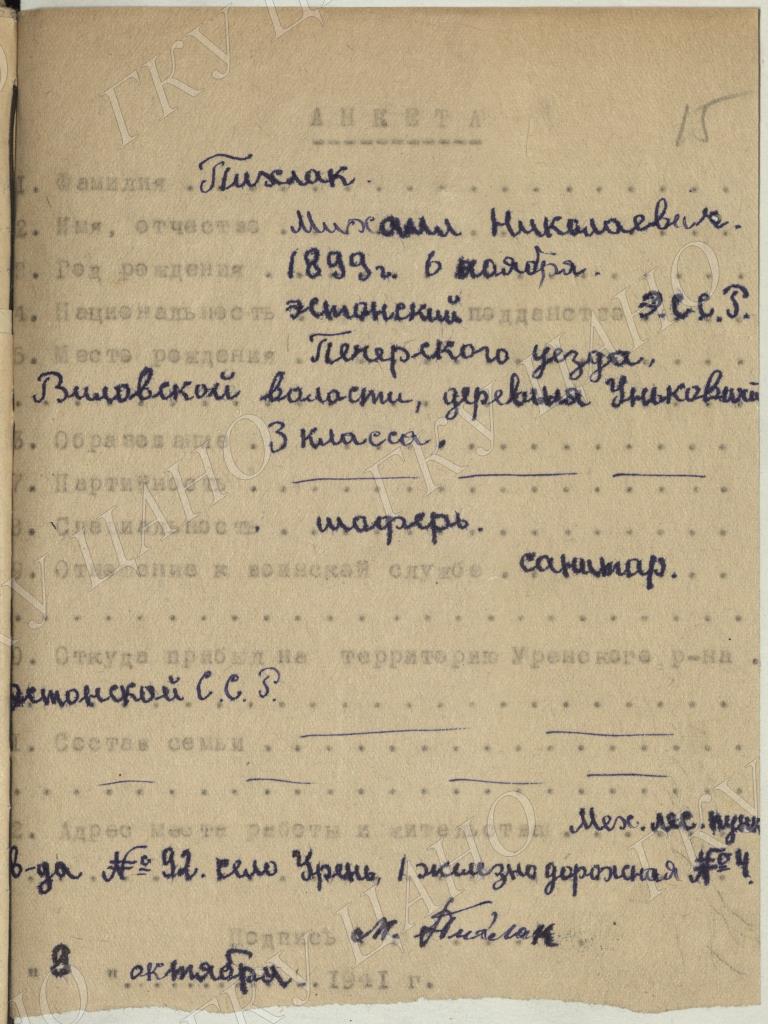 15
АНКЕТА
1. Фамилия Пихлак.
2. Имя, отчество Михаил Николаевич.
3. Год рождения 1899 г. 6 ноября.
4. Национальность эстонский подданство Э.С.С.Р.
5. Место рождения Печерского уезда,
Виловской волости, деревня
6. Образование 3 класса.
7. Партийность
8. Специальность шаферь.
9. Отношение к воинской службе санитар.
0. Откуда прибыл на территорию Уренского р-на
эстонской С.С.Р.
1. Состав семьи
2. Адрес места работы и жительства Мех. лес. пунк
в-да № 92. село Урень, 1 железно дорожная № 4.
Подпись М. Пихлак
" 8 " октября 1941 г.